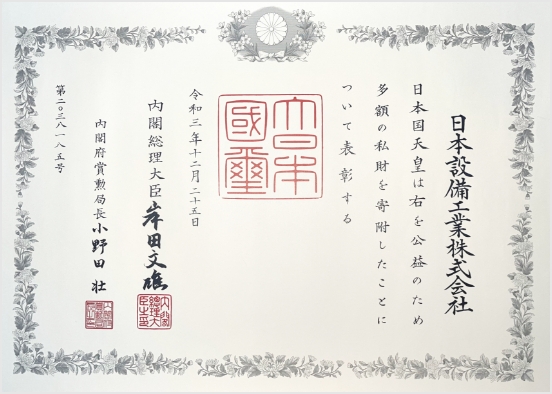 日本設備工業株式会社
日本国天皇は右を公益のため
多額の私財を寄附したことに
ついて表彰する
大日本
國璽
令和三年十二月二十五日
内閣総理大臣 岸田文雄
内閣
総理大
臣之印
内閣府賞勲局長 小野田 壮
第二〇三八一八五号